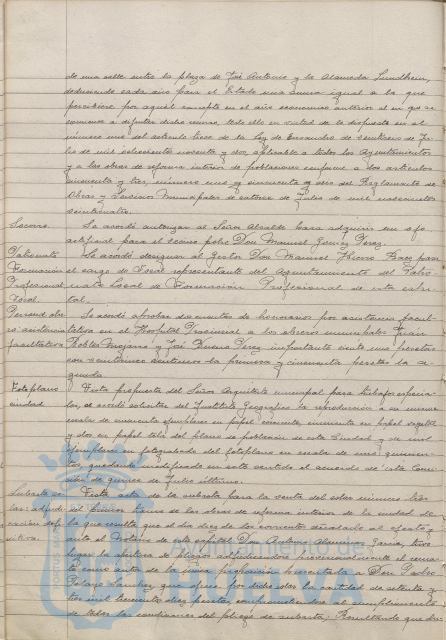 de una calle entre la plaza de José Antonio y la Alameda Sundheim,
deduciendo cada año para el Estado una suma igual a la que
percibiere por aquel concepto en el año económico anterior al en que se
comience a disfrutar dicho recurso, todo ello en virtud de lo dispuesto en el
número uno del artículo trece de la Ley de Ensanche de veintiseis de Ju-
lio de mil ochocientos noventa y dos, aplicable a todos los Ayuntamientos
y a las obras de reforma interior de poblaciones conforme a los artículos
cincuenta y tres, número uno y cincuenta y seis del Reglamento de
Obras y Servicios Municipales de catorce de Julio de mil novecientos
veinticuatro.
Socorro. Se acordó autorizar al Señor Alcalde para adquirir un ojo
artificial para el obrero pobre Don Manuel Gómez Pérez.
Se acordó designar al Gestor Don Manuel para
Formación el cargo de Vocal representante del Ayuntamiento del Patro-
Profesional, nato Local de Formación Profesional de esta capi-
Vocal. tal.
Se acordó aprobar dos cuentas de honorarios por asistencia facul-
asistencia tativa en el Hospital Provincial a los obreros municipales Juan
facultativa Robles Mojarro y José Pérez importante ciento una pesetas
con veinticinco céntimos la primera y cincuenta pesetas la se-
gunda.
Fotoplano Vista propuesta del Señor Arquitecto municipal para trabajos especia-
ciudad les, se acordó solicitar del Instituto Geográfico la reproducción a su misma
escala de cuarenta ejemplares en papel corriente, cincuenta en papel vegetal
y dos en papel tela del plano de población de esta Ciudad y de un
ejemplar en fotograbado del fotoplano en escala de mil quinien-
tos, quedando modificado en este sentido el acuerdo de esta Comi-
sión de quince de Julio último.
Subasta so- Vista acta de la subasta para la venta del solar número
lar: adjudi- del primer tramo de las obras de reforma interior de la ciudad de
cación defi- la que resulta que el día diez de los corrientes señalado al efecto y
nitiva. ante el Notario de esta capital Don Antonio García, tuvo
lugar la apertura de pliegos adjudicándose provisionalmente el rema-
te como autor de la única proposición presentada a Don Pedro
Pelayo Sánchez que ofrece por dicho solar la cantidad de setenta y
tres mil trescientas diez pesetas comprometiéndose al cumplimiento
de todas las condiciones del pliego de subasta; Resultando que du-
Ayuntamiento de
HUELVA